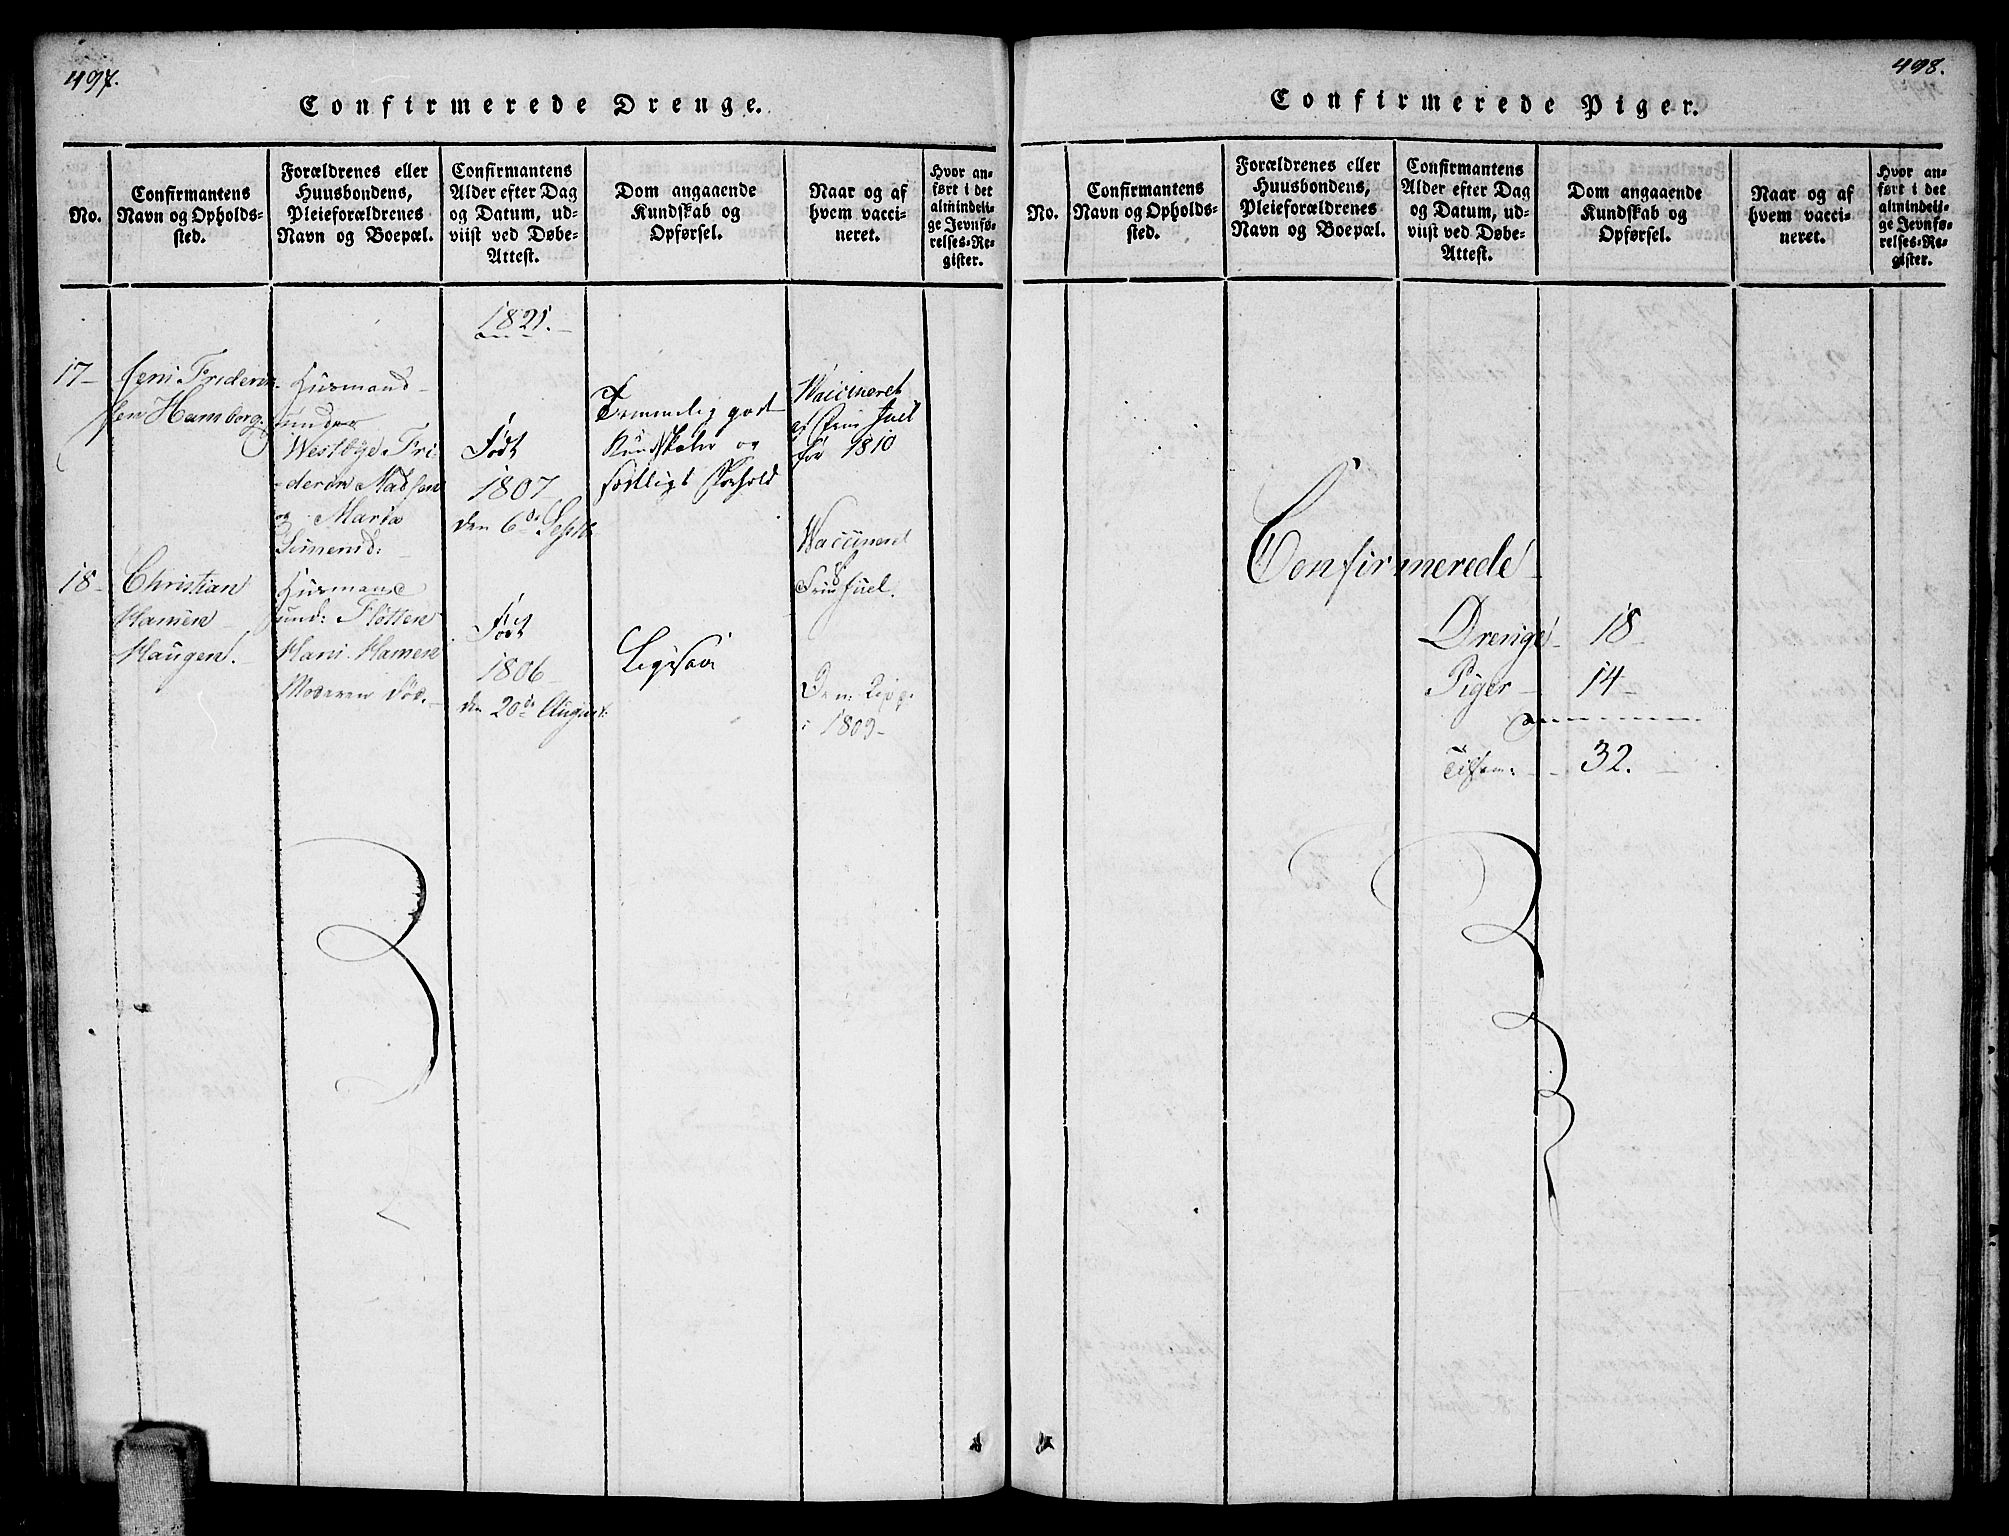 497.
Confirmerede Drenge.
No.
Confirmantens
Navn og Opholds-
sted.
Forældrenes eller
Huusbondens,
Pleieforældrenes
Navn og Boepæl.
Confirmantens
Alder efter Dag
og Datum, ud-
viist ved Døbe-
Attest.
Dom angaaende
Kundskab og
Opførsel.
Naar og af
hvem vacci-
neret.
Hvor an-
ført i det
almindeli-
ge Jevnfø-
relses-Re-
gister.
1821.
17-
Jens Frideric-
sen Hamborg.
Husmand
under
Westbye Fri
-deric Madsen
og Maria
Simensd:
Født
1807
den 6de Septb.
Temmelig god
Kundskaber og
Forhold
Vaccineret
af Juel
for 1810
18-
Christian
Hansen
Haugen.
Husmand
und: Fløtten
Hans Hansen
Moderen død.
Født
1806
den 20de August:
Ligesaa
Vaccineret
af
Juel.
1809
498.
Confirmerede Piger.
No.
Confirmantens
Navn og Opholds-
sted.
Forældrenes eller
Huusbondens,
Pleieforældrenes
Navn og Boepæl.
Confirmantens
Alder efter Dag
og Datum, ud-
viist ved Døbe-
Attest.
Dom angaaende
Kundskab og
Opførsel.
Naar og af
hvem vacci-
neret.
Hvor an-
ført i det
almindeli-
ge Jevnfø-
relses-Re-
gister.
Confirmerede
Drenge - 18-
Piger - 14-
Tilsam: - 32.